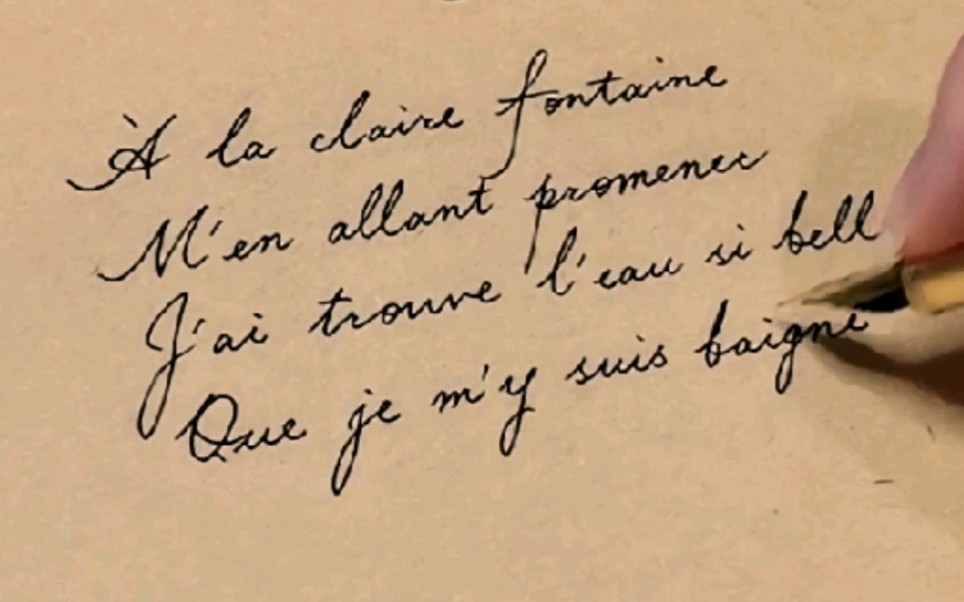 À la claire fontaine
M'en allant promener
J'ai trouve l'eau si bell
Que je m'y suis baigne